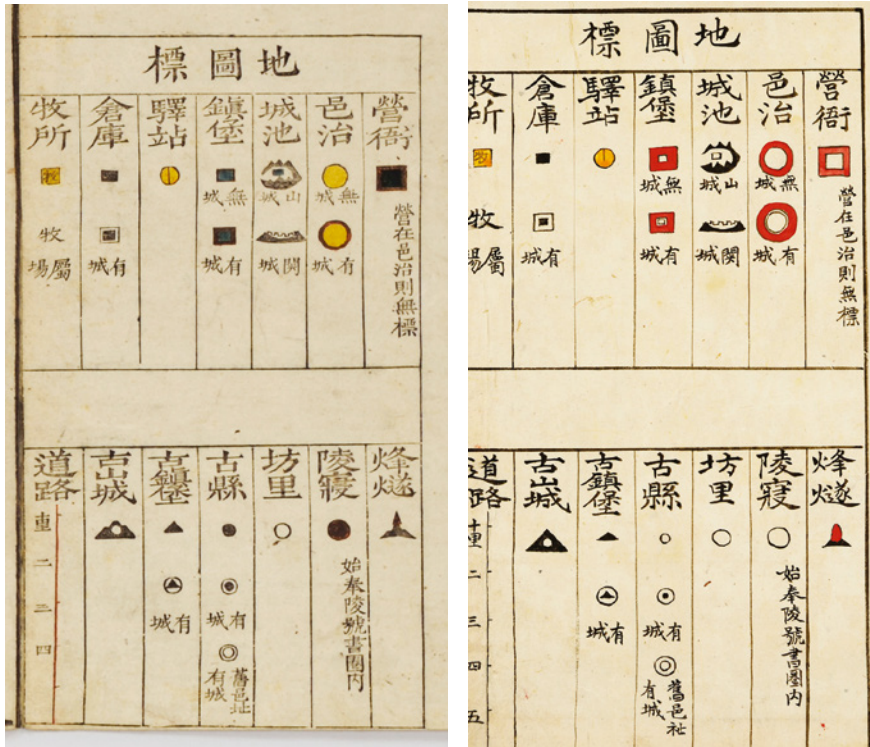 地圖標
營衙
營在邑治則無標
邑治
無城
有城
城池
山城
関城
鎮堡
無城
有城
驛站
倉庫
有城
牧所
牧
牧
屬場
烽燧
陵寢
始奉陵號書圈内
坊里
古縣
有城
舊邑址
有城
古鎮堡
有城
古山城
道路
十里
二
三
四
地圖標
營衙
營在邑治則無標
邑治
無城
有城
城池
山城
関城
鎮堡
無城
有城
驛站
倉庫
有城
牧所
牧
牧
屬場
烽燧
陵寢
始奉陵號書圈内
坊里
古縣
有城
舊邑址
有城
古鎮堡
有城
古山城
道路
十里
二
三
四
五